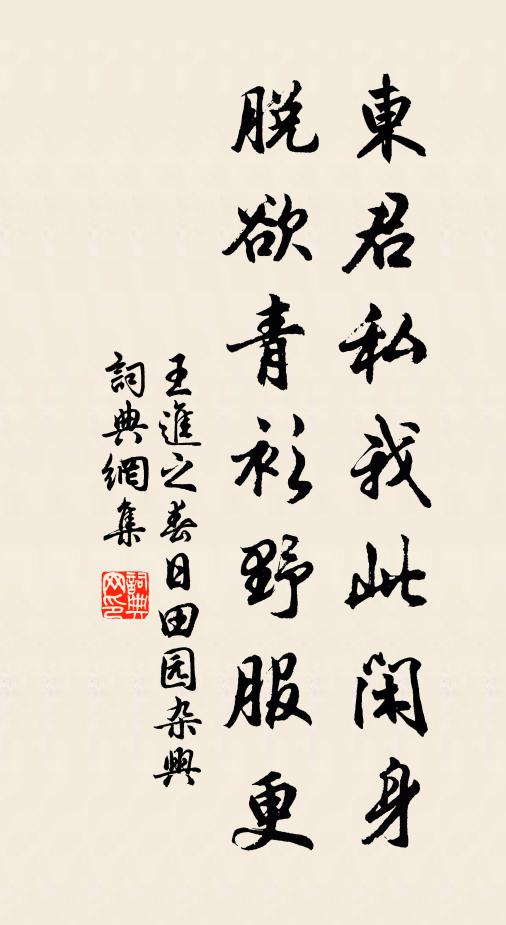 東君私我此閑身
脱欲青衫野服更
王進之春日田园杂興
詞典網集
詞典网印